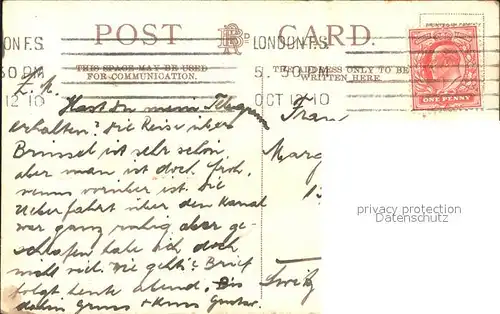 POST CARD.
THIS SPACE MAY BE USED
FOR COMMUNICATION.
THE ADDRESS ONLY TO BE
WRITTEN HERE.
LONDON F.S.
OCT 12 10
ONE PENNY
L. K.
Hast du mein Telegramm
erhalten? Die Reise über
Brüssel ist sehr schön
aber man ist doch froh,
wenns vorüber ist. Die
Ueberfahrt über den Kanal
war ganz ruhig aber ge-
schlafen habe ich doch
nicht viel. Wie gehts? Brief
folgt heute abend. Bis
dahin Gruss + Kuss Gustav.
Frau
Marg
privacy protection
Datenschutz